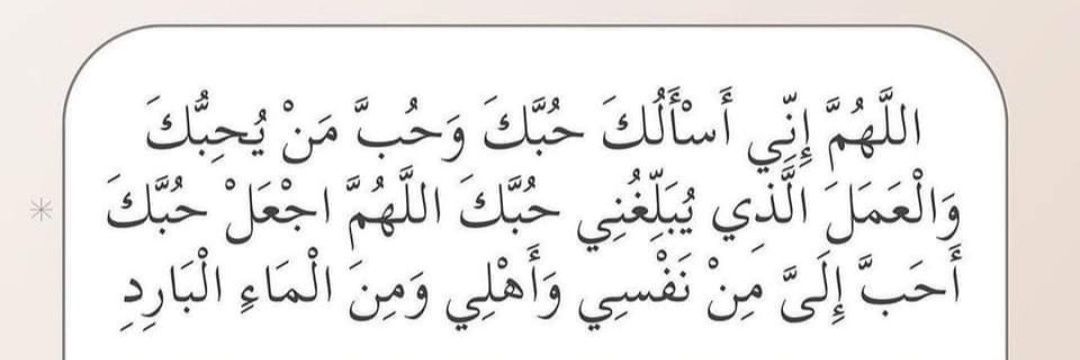 اللَّهُمَّ إِنِّي أَسْأَلُكَ حُبَّكَ وَحُبَّ مَنْ يُحِبُّكَ
وَالْعَمَلَ الَّذِي يُبَلِّغُنِي حُبَّكَ اللَّهُمَّ اجْعَلْ حُبَّكَ
أَحَبَّ إِلَىَّ مِنْ نَفْسِي وَأَهْلِي وَمِنَ الْمَاءِ الْبَارِدِ